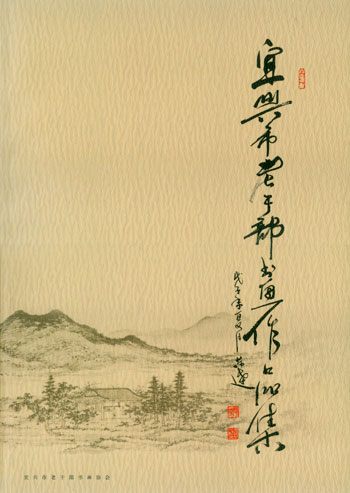 宜興市老干部书画作品集
戊子年
宜兴市老干部书画协会